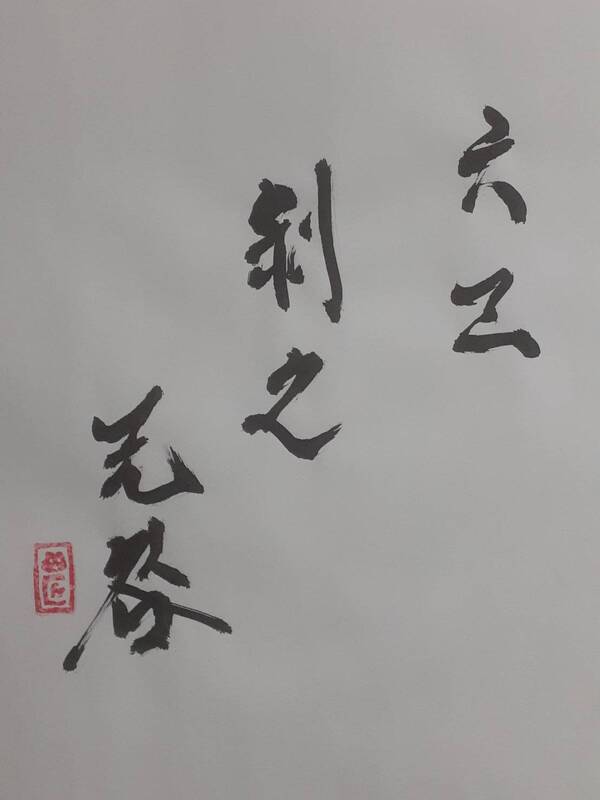 六三
剥之
无咎